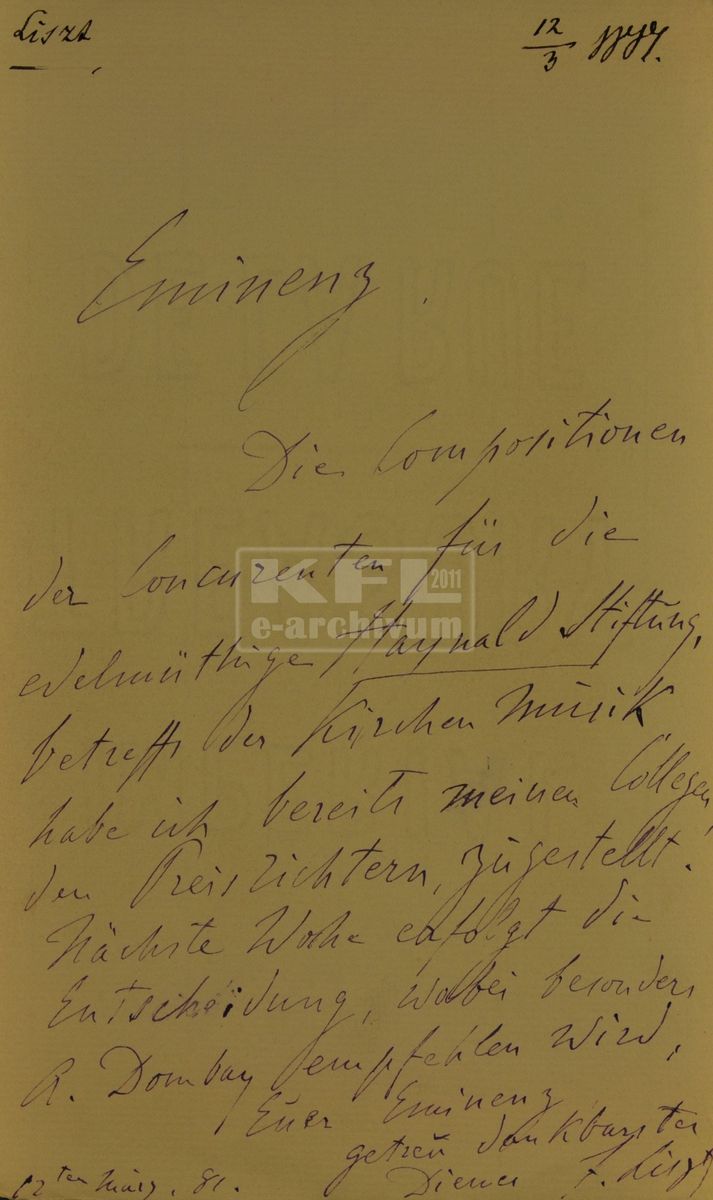 Liszt
12/3
Eminenz.
Die Compositionen
der Concurenten für die
KFL 2011
e-archivum
edelmüthige Haynald Stiftung,
betreffs der Kirchen Musik
habe ich bereits meinen Collegen,
den Preisrichtern, zugestellt.
Nächste Woche erfolgt die
Entscheidung, wobei besonders
A. Dombay empfehlen wird,
Euer Eminenz
getreu dankbarster
12ten März. 81. Diener F. Liszt